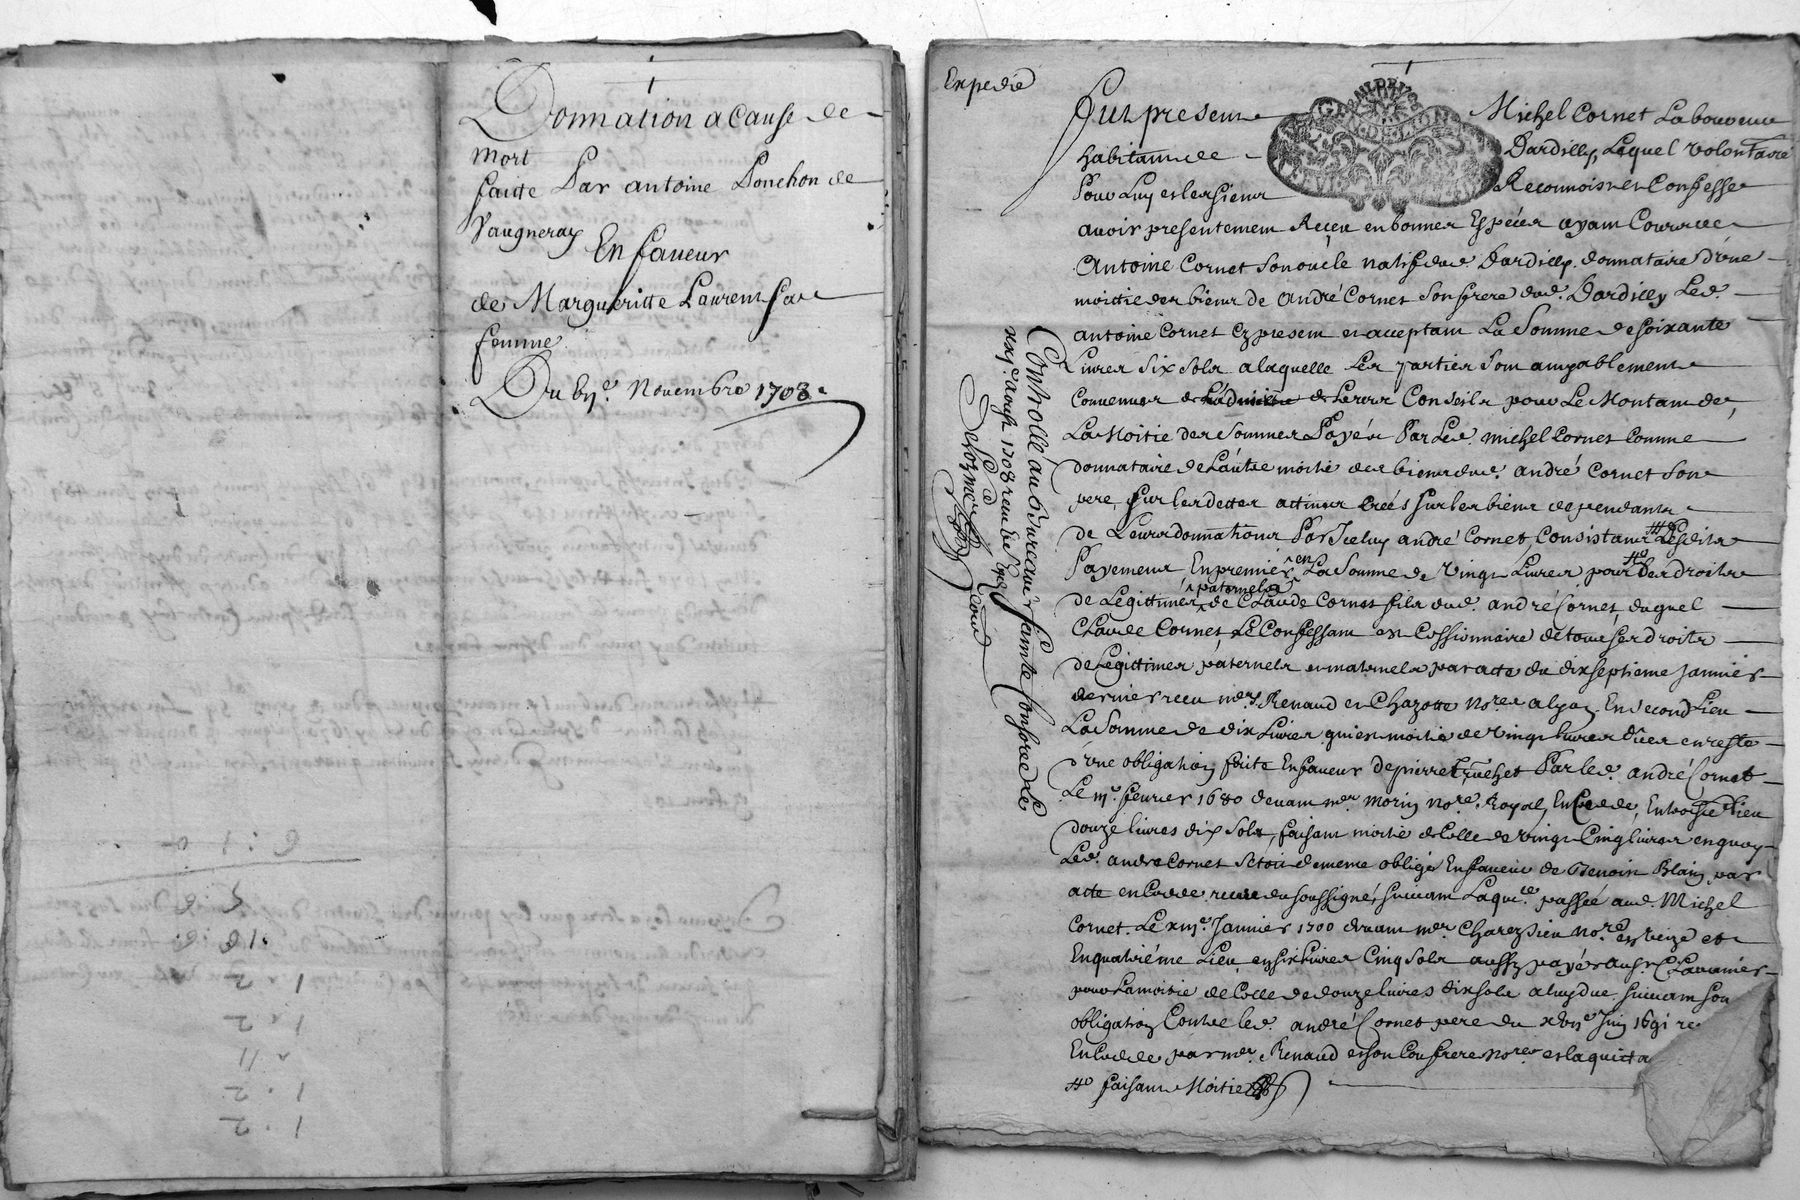 Donnation a Cause de
mort
faitte Par antoine Ponchon de
Vaugneray
En faveur
de Margueritte Laurent sa
femme
Du 6e. Novembre 1708.
Expedié
Fut present Michel Cornet Laboureur
habitant de Dardilly, Lequel volontaire
Pour Luy et les siens Reconnoist et Confesse
avoir presentement Reçeu en bonnes Espéces ayant Cours de
Antoine Cornet son oncle natif dud. Dardilly. donnataire d'une
moittie des biens de André Cornet son frere dud. Dardilly Led.
antoine Cornet cy present et acceptant La Somme de soixante
Livres six sols a laquelle Les parties sont amyablement
Convenues de Leurs Conseils pour Le Montant de
La Moitie des sommes Payés Par Led. michel Cornet Comme
donnataire de L'autre moitié des biens dud. andré Cornet son
pere, sur les dettes actives Creés sur les biens dependants
de Leurs donnations Par Iceluy andré Cornet, Consistant Lesdits
Payements En premier en La Somme de vingt Livres pour des droits
paternels
de Légittimes de Claude Cornet fils dud. andré Cornet, duquel
Claude Cornet, Le Confessant est Cessionnaire de tous ses droits
de Legittimes paternels et maternels par acte du dix septieme Janvier
dernier receu mers. Renaud et Chazotte Nores a Lyon, En second Lieu
La Somme de dix Livres qui est moitié de vingt livres dües en reste
d'une obligation faite En faveur de pierre Truchet Par led. andré Cornet
Le fevrier 1680 devant mer morin Nore. Royal, En troisie Lieu
douze livres dix sols, faisant moitié de Celle de vingt Cinq livres en quoy
Led. andre Cornet setoit de meme obligé En faveur de Benoist Blain, par
acte receue du soussigné, suivant La quice. passée aud. Michel
Cornet. Le xiije Janvier 1700 devant mer Charezieu Nore et
En quatriéme Lieu, en six Livres Cinq sols aussy payés
pour La moitie de Celle de douze livres dix sols a luy due suivant son
obligation Contre led. andré Cornet pere du Juin 1691 re
par mer. Renaud et son Confrere Nores et la quitta
faisant Moitie
Controllé au Bureau de sainte Consorce Le
aoust 1708 receu